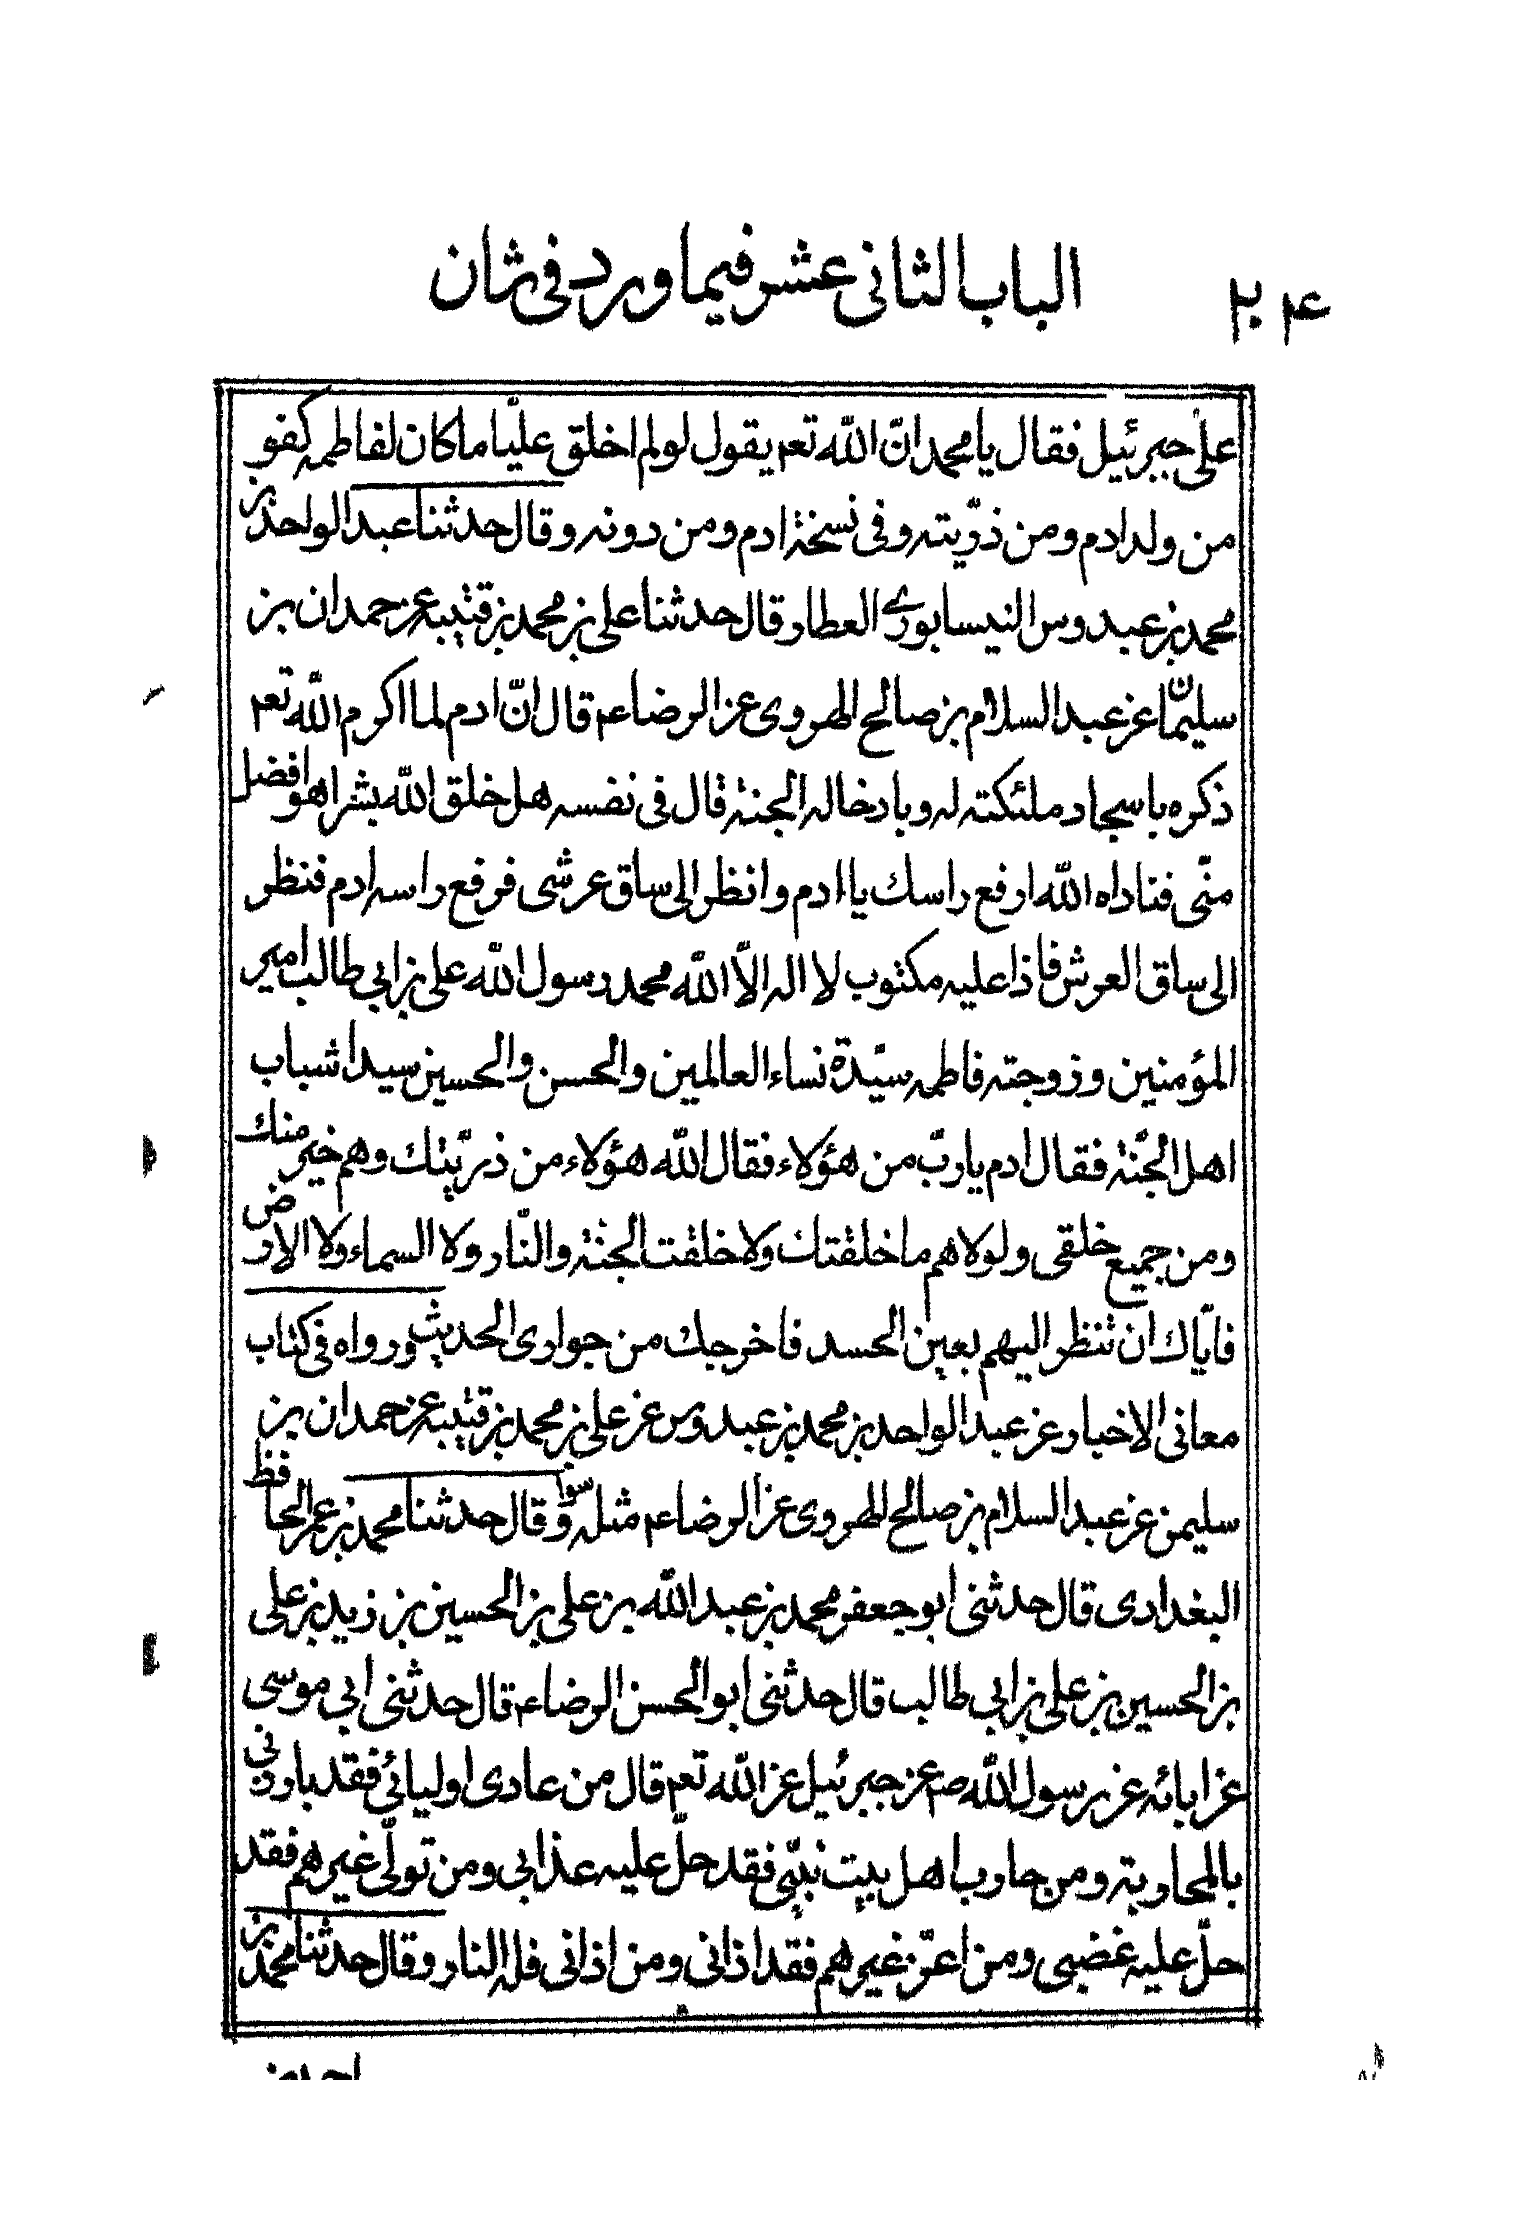 ع ٢٠ الباب الثانى عشر فيما ورد فى ثان
على جبرئيل فقال يا محمد انّ اللّه تعم يقول لو لم اخلق عليّا ما كان لفاطمه كفو
من ولد ادم ومن ذرّيته وفى نسخة ادم ومن دونه وقال حدثنا عبد الواحد بن
محمد بن عبدوس النيسابورى العطار قال حدثنا على بن محمد بن قتيبه عن حمدان بن
سليمان عن عبد السلام بن صالح الهروى عن الرضاء قال انّ ادم لما اكرم اللّه تعم
ذكره باسجاد ملئكته له وبادخاله الجنة قال فى نفسه هل خلق اللّه بشرا هو افضل
منّى فناداه اللّه ارفع راسك يا ادم وانظر الى ساق عرشى فرفع راسه ادم فنظر
الى ساق العرش فاذا عليه مكتوب لا اله الّا اللّه محمد رسول اللّه على بن ابي طالب امير
المؤمنين وزوجته فاطمه سيّدة نساء العالمين والحسن والحسين سيدا شباب
اهل الجنّة فقال ادم يا ربّ من هؤلاء فقال اللّه هؤلاء من ذرّيتك وهم خير منك
ومن جميع خلقى ولولا هم ما خلقتك ولا خلقت الجنة والنّار ولا السماء ولا الارض
فايّاك ان تنظر اليهم بعين الحسد فاخرجك من جوارى الحديث ورواه فى كتاب
معانى الاخبار عن عبد الواحد بن محمد بن عبدوس عن على بن محمد بن قتيبه عن حمدان بن
سليمن عن عبد السلام بن صالح الهروى عن الرضاء مثله سوا وقال حدثنا محمد بن عمر الحافظ
البغدادى قال حدثنى ابو جعفر محمد بن عبد اللّه بن على بن الحسين بن زيد بن على
بن الحسين بن على بن ابي طالب قال حدثنى ابو الحسن الرضاء قال حدثنى ابي موسى
عن ابائه عن رسول اللّه ص عن جبرئيل عن اللّه تعم قال من عادى اوليائى فقد بارزنى
بالمحاربته ومن حارب اهل بيت نبيّى فقد حلّ عليه عذابى ومن تولّى غيرهم فقد
حلّ عليه غضبى ومن اعزّ غيرهم فقد اذانى ومن اذانى فله النار وقال حدثنا محمد بن